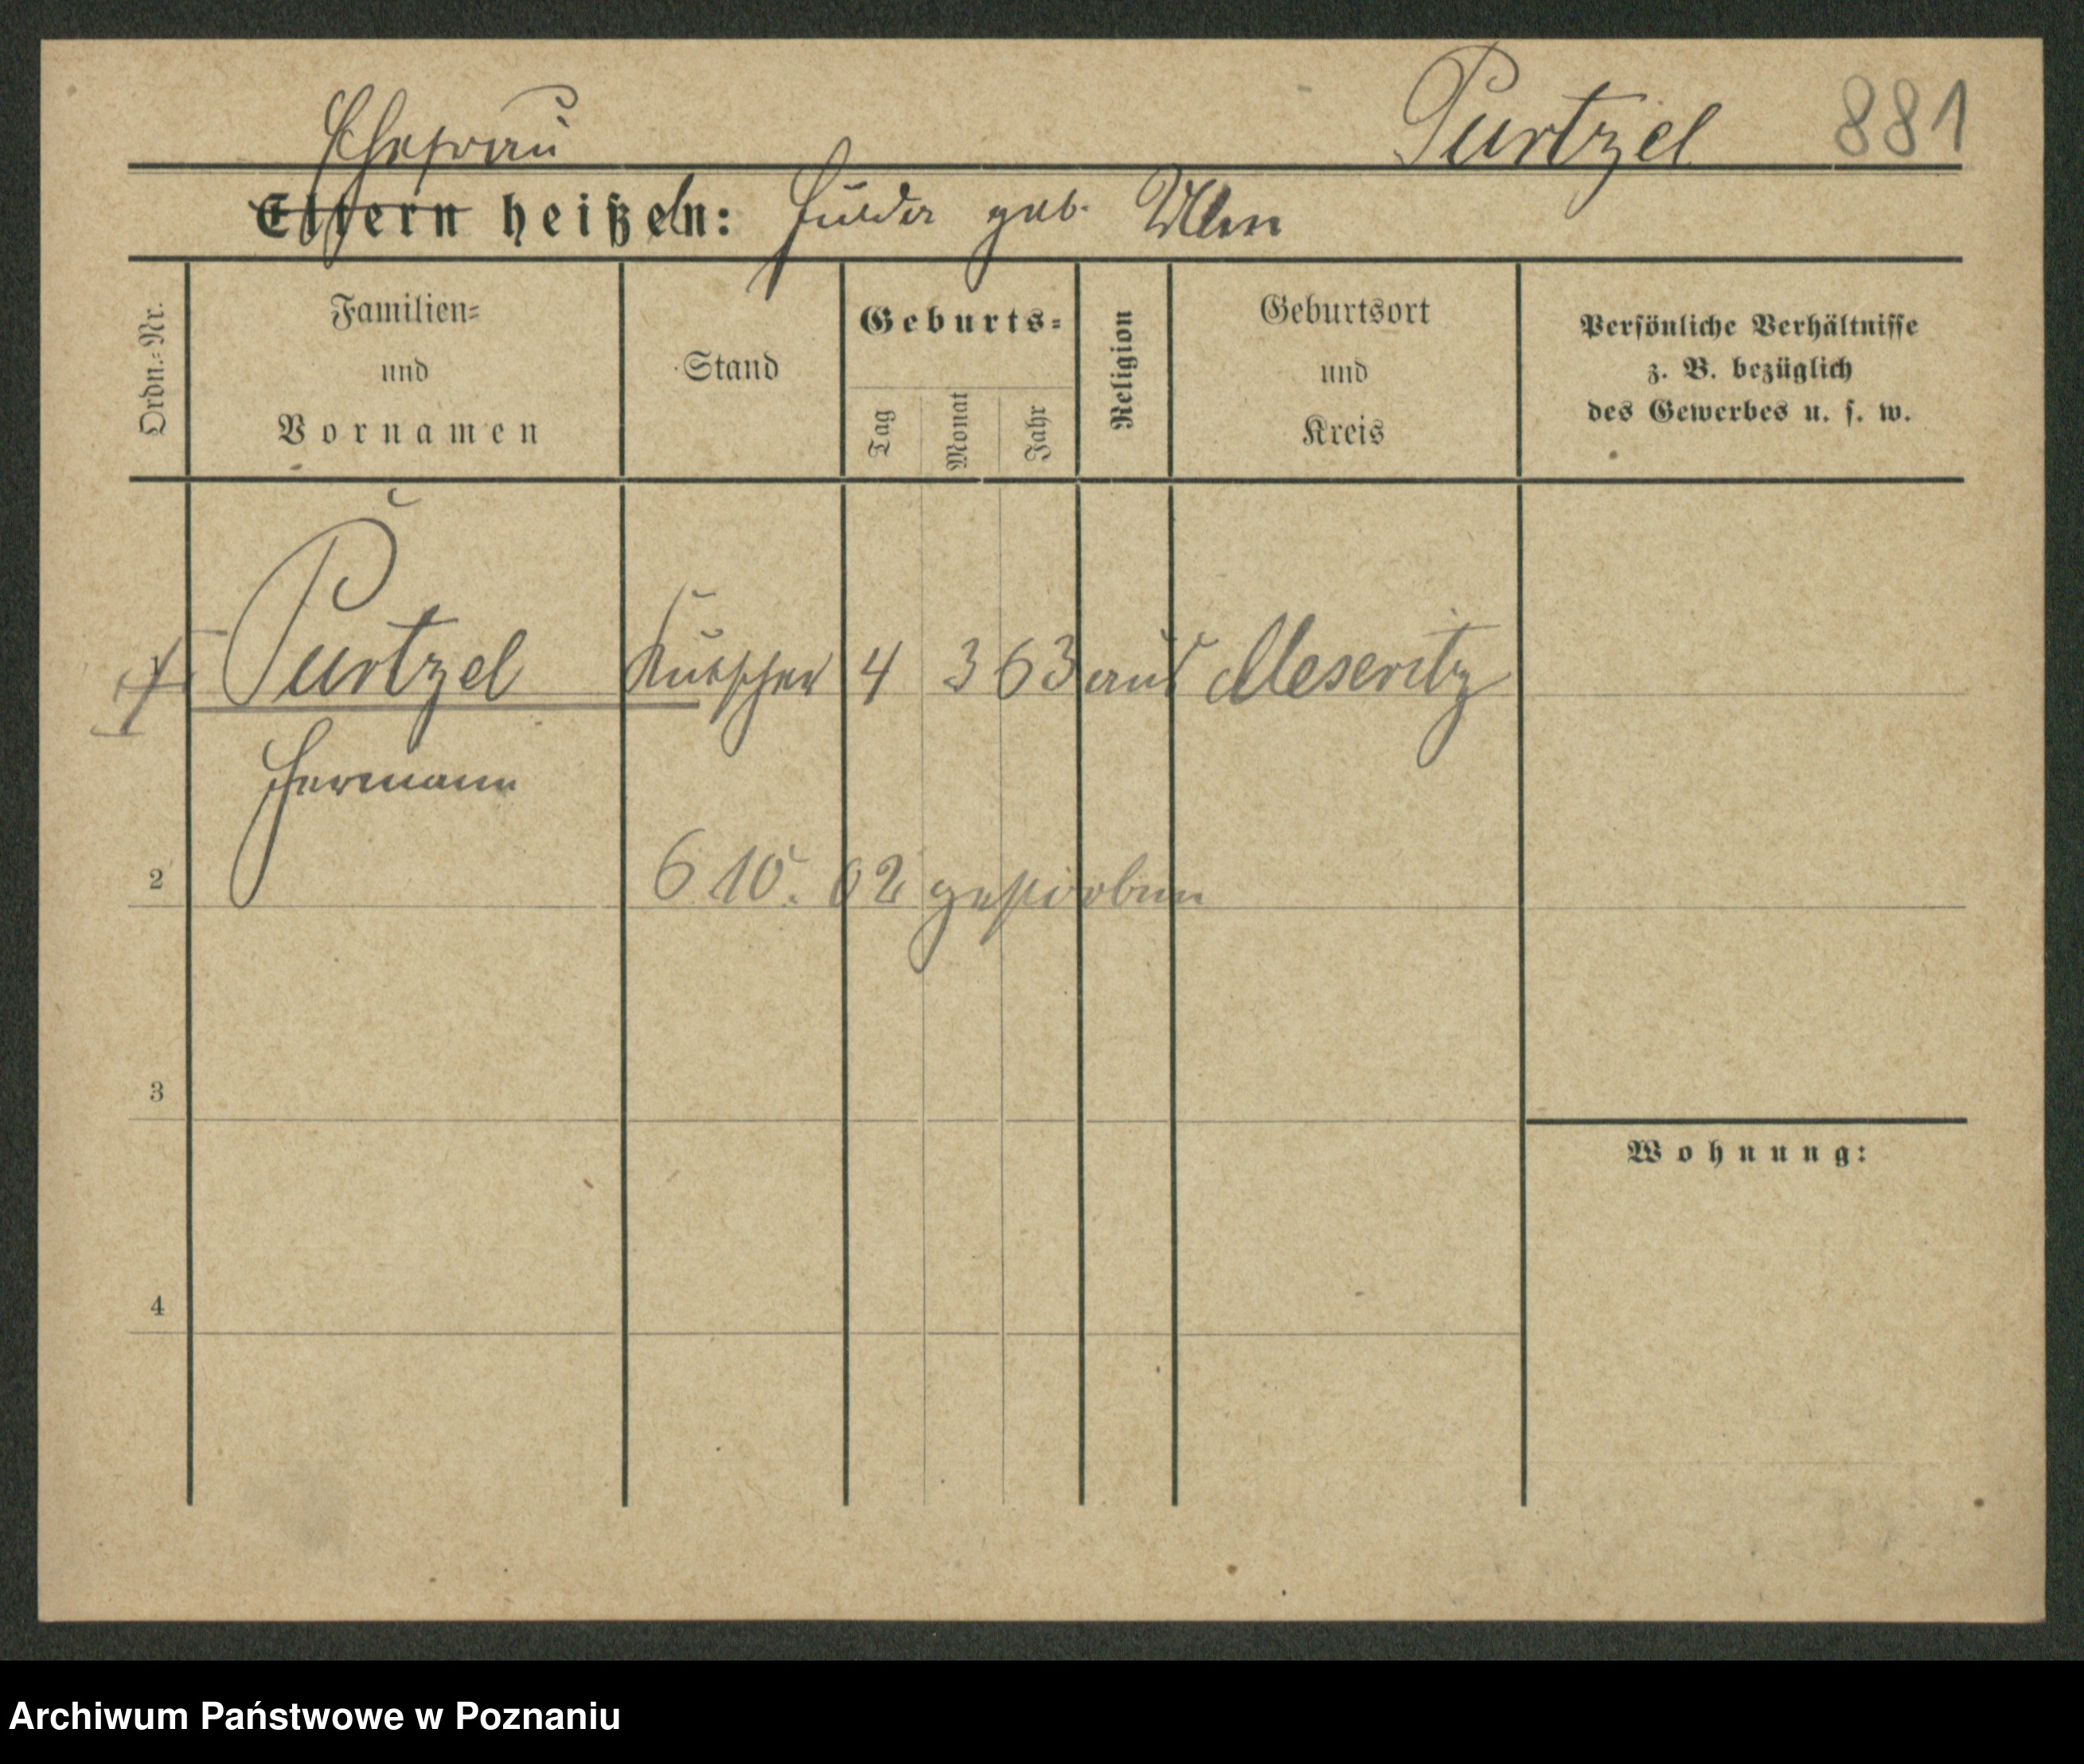 Ehefrau Purtzel 881
Eltern heißen: Hulda geb.
Ordn.=Nr.
Familien=
und
Vornamen
Stand
Geburts=
Tag
Monat
Jahr
Religion
Geburtsort
und
Kreis
Persönliche Verhältnisse
z. B. bezüglich
des Gewerbes u. s. w.
Purtzel Kutscher 4 3 63 aus Meseritz
Hermann
6 10. 02 gestorben
2
3
Wohnung:
4
Archiwum Państwowe w Poznaniu